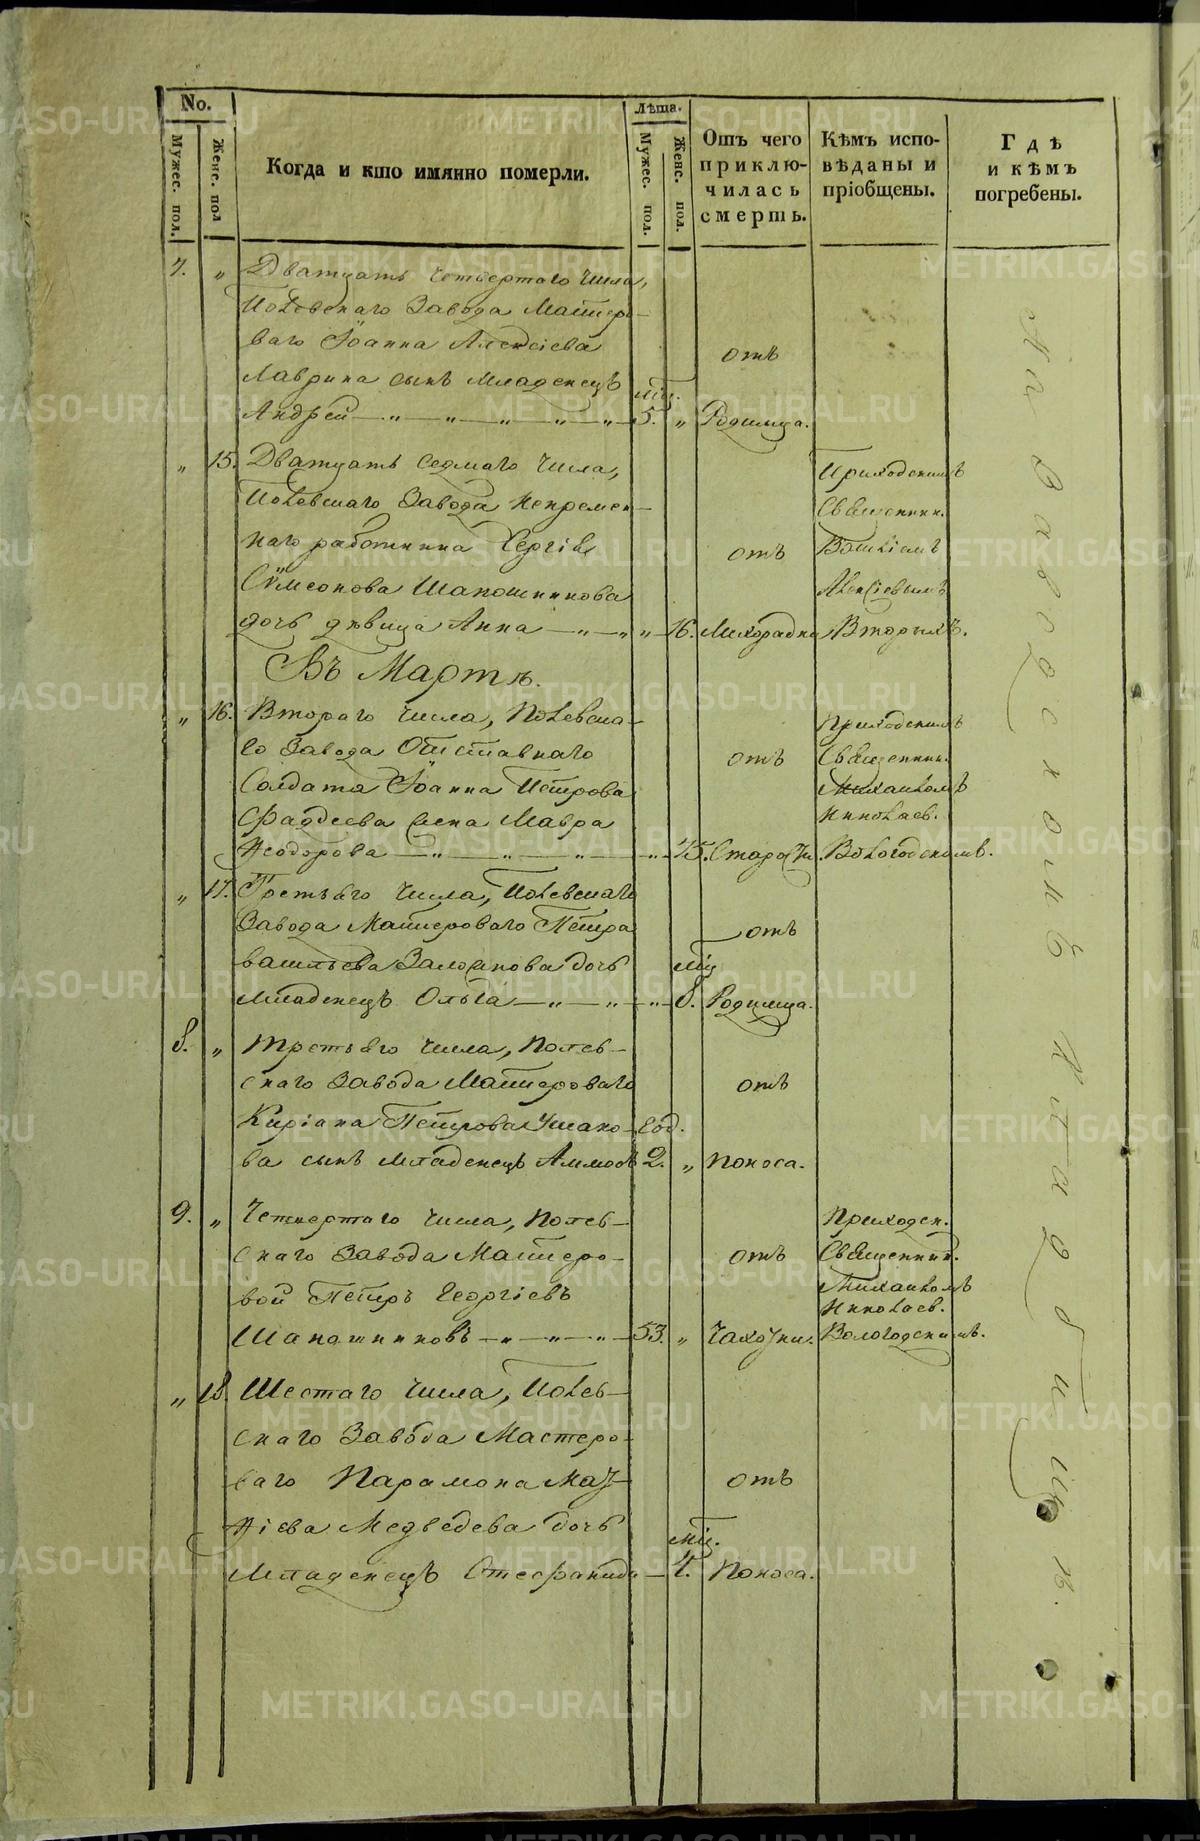 No.
Мужес. пол.
Женс. пол
Когда и кто имянно померли.
Лѣта.
Мужес. пол.
Женс. пол.
Отъ чего
приклю-
чилась
смерть.
Кѣмъ испо-
вѣданы и
пріобщены.
Гдѣ
и кѣмъ
погребены.
7. „ Дватцать четвертаго числа,
Полевскаго Завода Мастеро-
ваго Іоанна Алексіева
Лаврина сынъ младенецъ
Андрей — „ — „ — „ — „ — „ — 5. „
отъ
Родимца.
„ 15. Дватцать седмаго числа,
Полевскаго Завода непремен-
наго работника Сергія
Сѵмеонова Шапошникова
дочь дѣвица Анна — „ — „ „ 16.
отъ
Лихорадки
Приходскимъ
Священник.
Алексіевымъ
Вторыхъ.
Въ Мартѣ.
„ 16. Втораго числа, Полевска-
го Завода Отставнаго
Солдата Іоанна Петрова
Фаддеева жена Мавра
Ѳеодорова — „ — „ — „ — „ 75.
отъ
Старости.
Приходскимъ
Священник.
Михаиломъ
Николаев.
Вологодскимъ.
„ 17. Третьяго числа, Полевскаго
Завода Мастероваго Петра
Васильева дочь
младенецъ Ольга — „ — „ — „ мѣц 8.
отъ
Родимца.
8. „ Третьяго числа, Полев-
скаго Завода Мастероваго
Киріана Петрова Ушако- год.
ва сынъ младенецъ Аммосъ 2. „
отъ
Поноса.
9. „ Четвертаго числа, Полев-
скаго Завода Мастеро-
вой Петръ Георгіевъ
Шапошниковъ — „ — „ — „ — 53. „
отъ
Чахотки.
Приходск.
Священник.
Михаиломъ
Николаев.
Вологодскимъ.
„ 18. Шестаго числа, Полев-
скаго Завода Мастеро-
ваго Парамона Мат-
ѳіева Медведева дочь
младенецъ Стефанида — мѣц. 4.
отъ
Поноса.
На Заводскомъ кладбищѣ.
METRIKI.GASO-URAL.RU